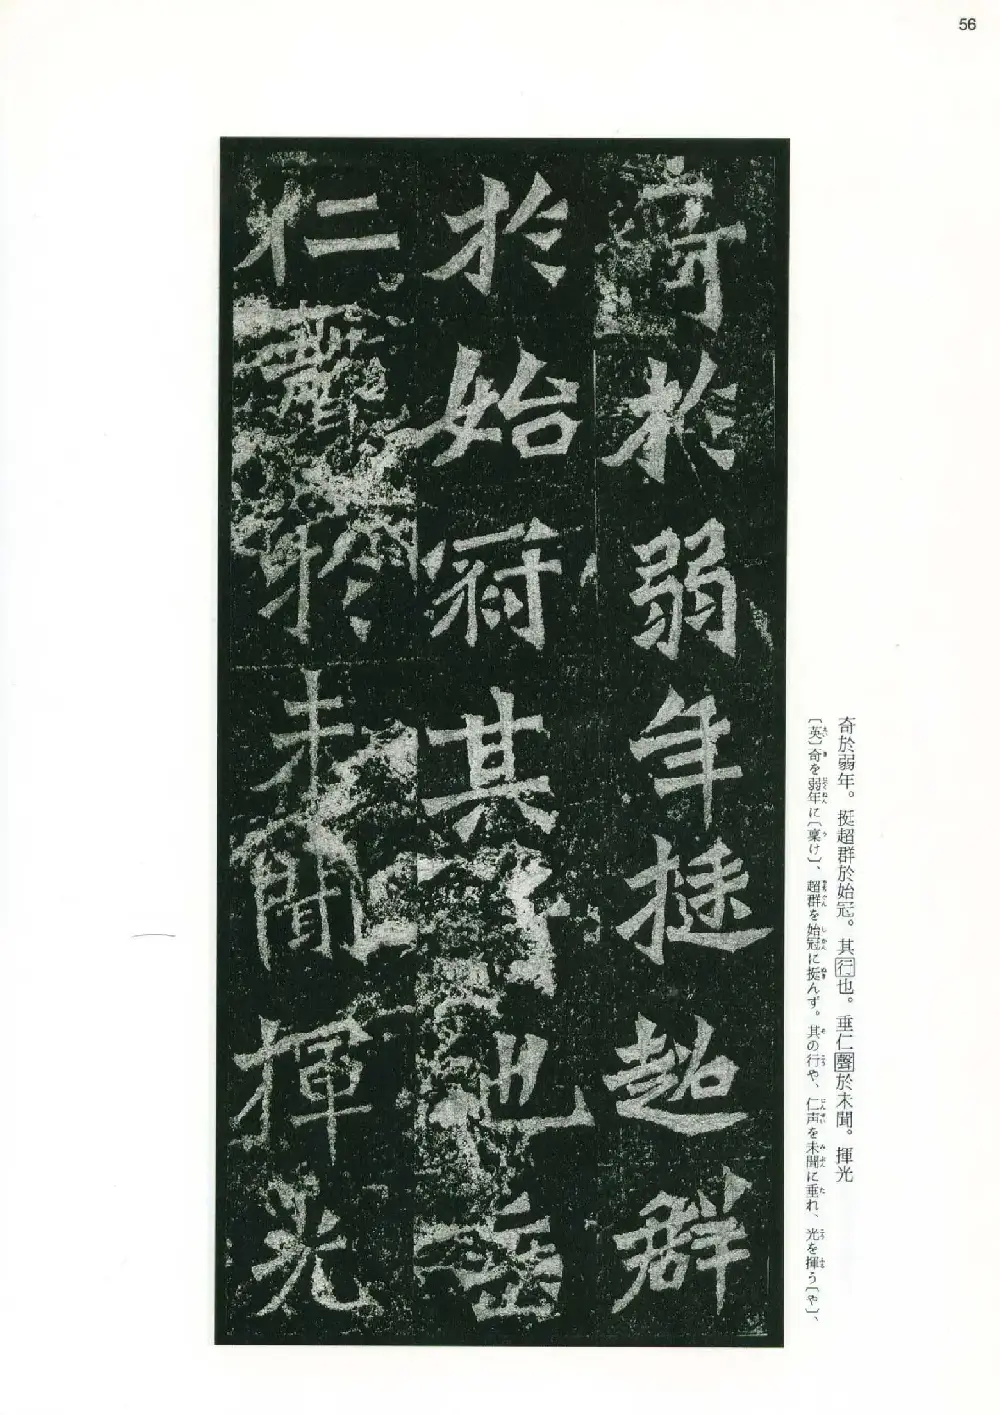 56
奇於弱年挺超群
於始冠其行也垂
仁聲於未聞揮光
奇於弱年。挺超群於始冠。其行也。垂仁聲於未聞。揮光
〔英〕奇を弱年に〔稟け〕、超群を始冠に挺んず。其の行や、仁声を未聞に垂れ、光を揮う〔や〕、